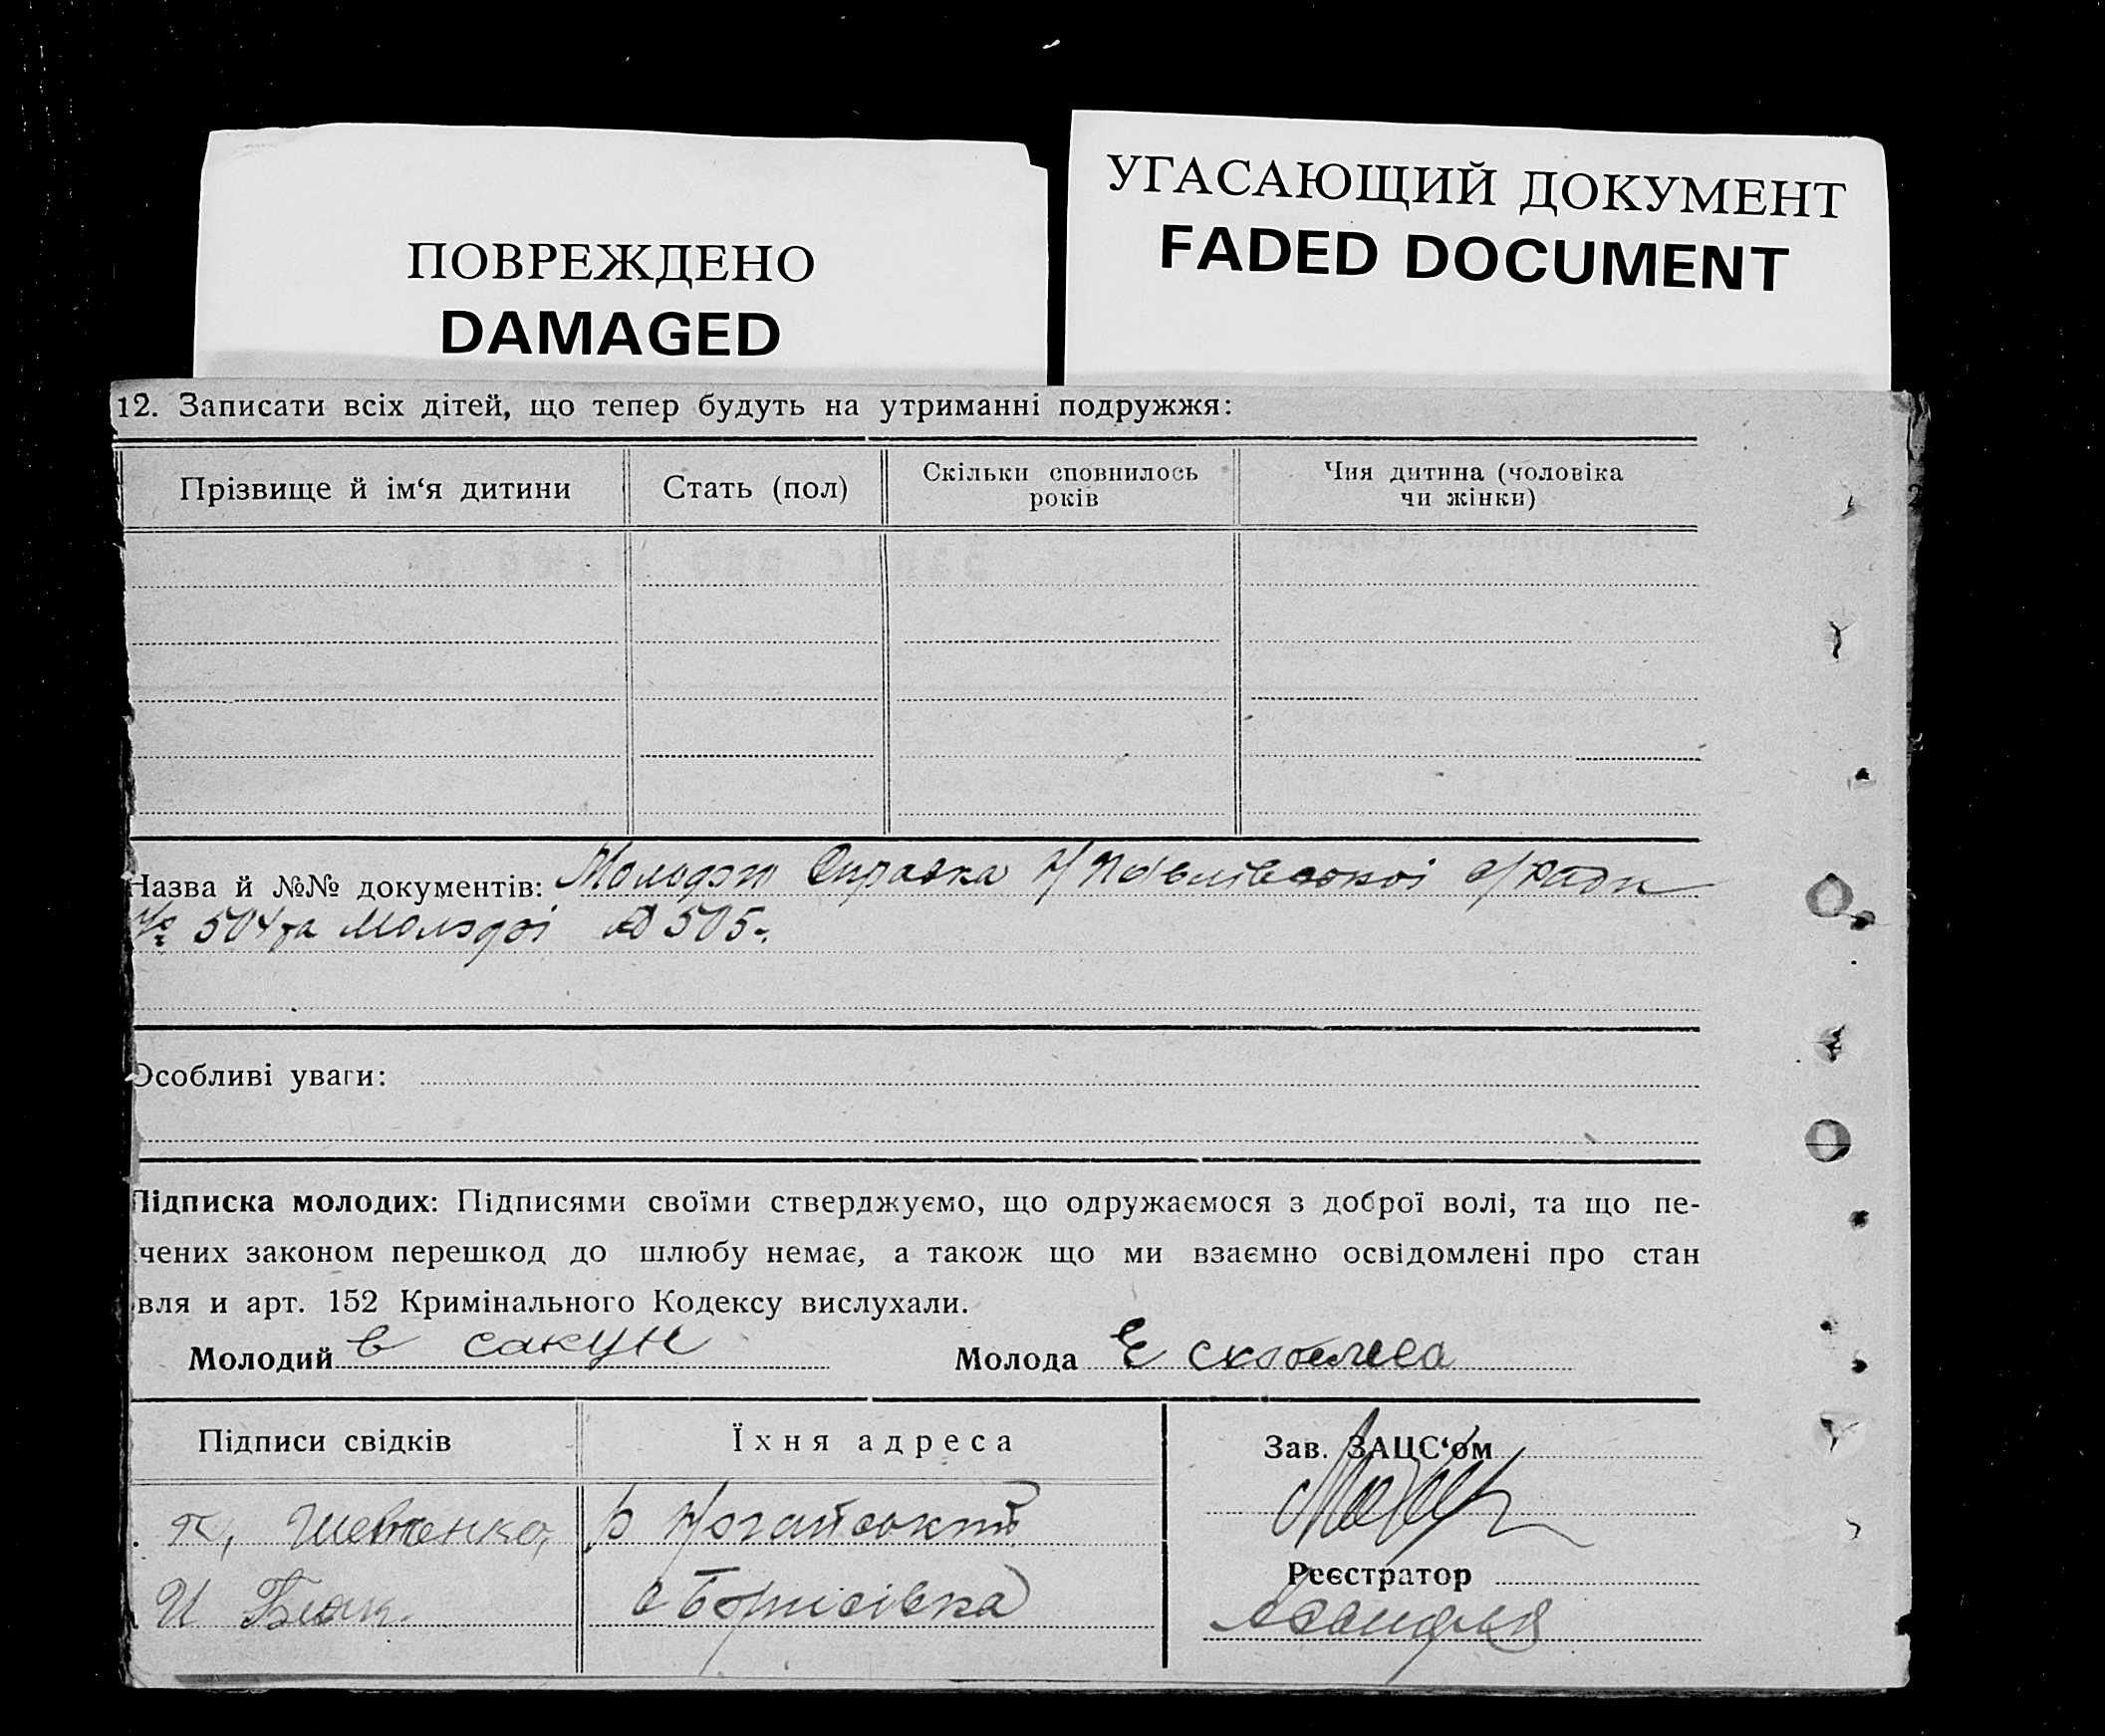 ПОВРЕЖДЕНО
DAMAGED
УГАСАЮЩИЙ ДОКУМЕНТ
FADED DOCUMENT
12. Записати всіх дітей, що тепер будуть на утриманні подружжя:
Прізвище й ім‘я дитини
Стать (пол)
Скільки сповнилось
років
Чия дитина (чоловіка
чи жінки)
Назва й №№ документів: Справка с/Ради
№ 504 та молодої № 505.
Особливі уваги:
Підписка молодих: Підписями своїми стверджуємо, що одружаємося з доброї волі, та що пе-
чених законом перешкод до шлюбу немає, а також що ми взаємно освідомлені про стан
вля и арт. 152 Кримінального Кодексу вислухали.
Молодий в сакун Молода Е скобелева
Підписи свідків
Їхня адреса
Зав. ЗАЦС‘ом
Шевченко, р Ногайський
Реєстратор
И с Борисівка